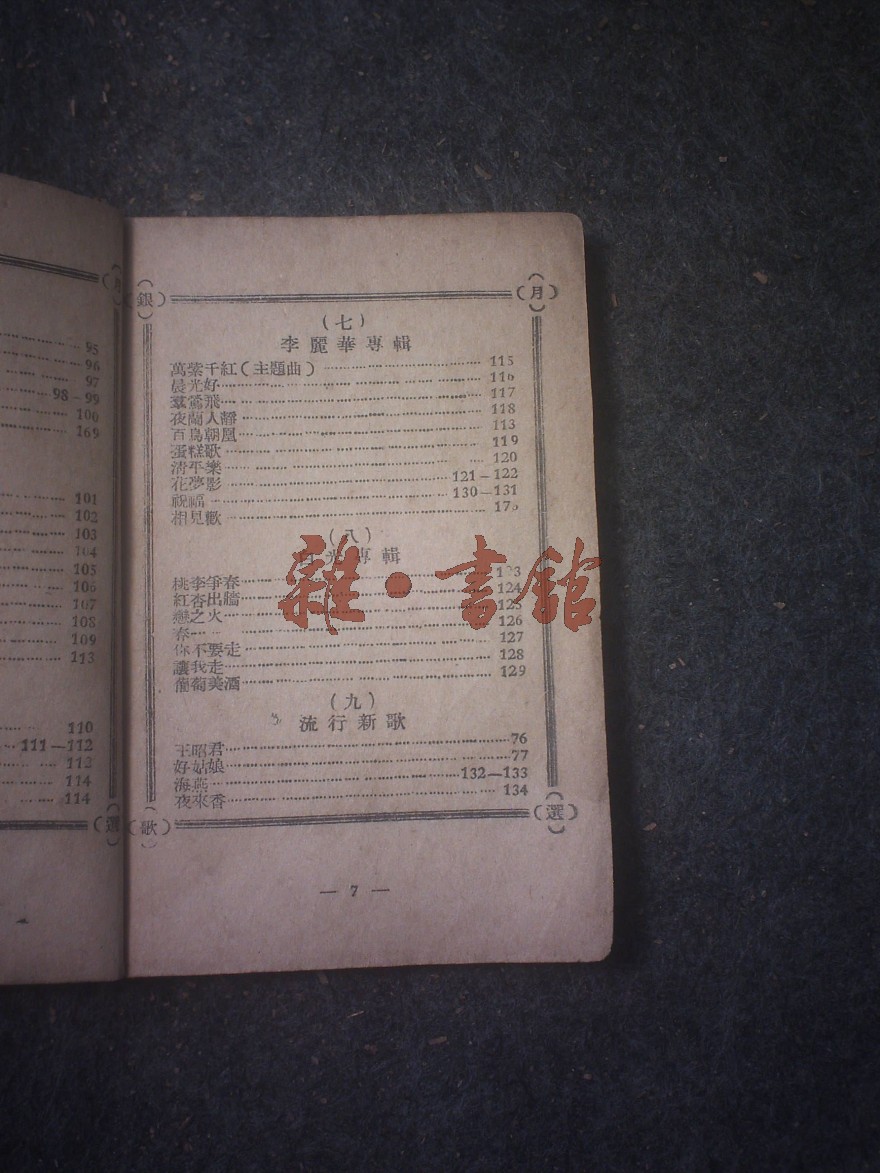 95
96
97
98—99
100
169
101
102
103
104
105
106
107
108
109
113
110
111—112
112
114
114
(選)
(銀) (月)
(七)
李麗華專輯
萬紫千紅(主題曲) 115
晨光好 116
羣鶯飛 117
夜闌人靜 118
百鳥朝凰 113
蛋糕歌 119
清平樂 120
花夢影 121—122
祝福 130—131
相見歡 175
(八)
白光專輯
桃李爭春 123
紅杏出牆 124
戀之火 125
春 126
你不要走 127
讓我走 128
葡萄美酒 129
(九)
流行新歌
王昭君 76
好姑娘 77
海燕 132—133
夜來香 134
(歌) (選)
— 7 —
雜·書館